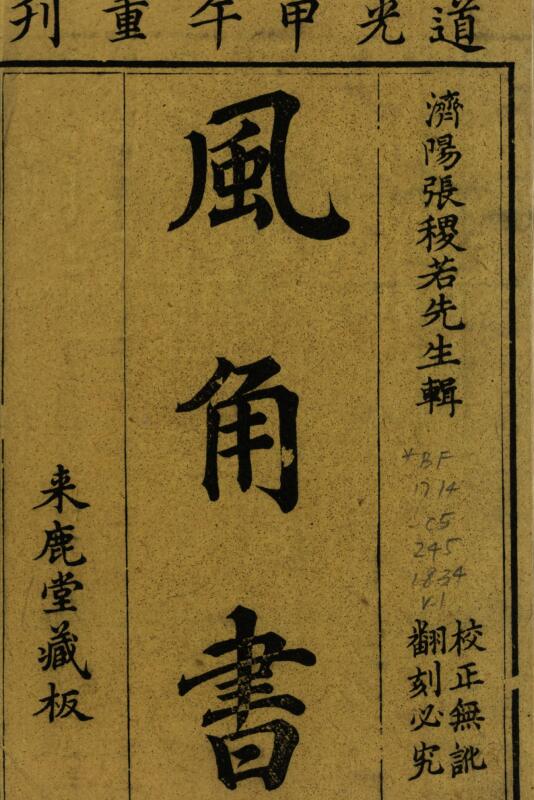 道光甲午重刊
濟陽張稷若先生輯
校正無訛
翻刻必究
風角書
来鹿堂藏板
*BF
1714
.C5
245
1834
v.1